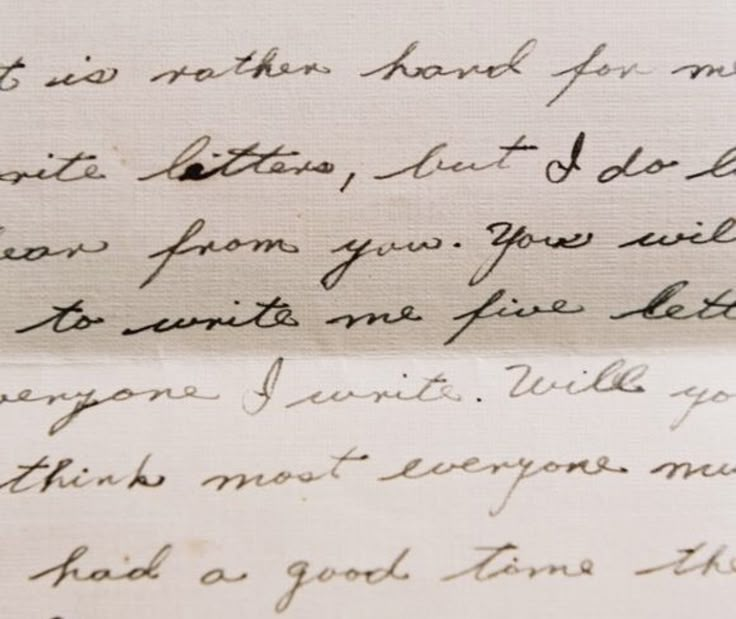 t is rather hard for me
rite letters, but I do l
ear from you. You wil
to write me five lett
veryone I write. Will yo
think most everyone mu
had a good time the